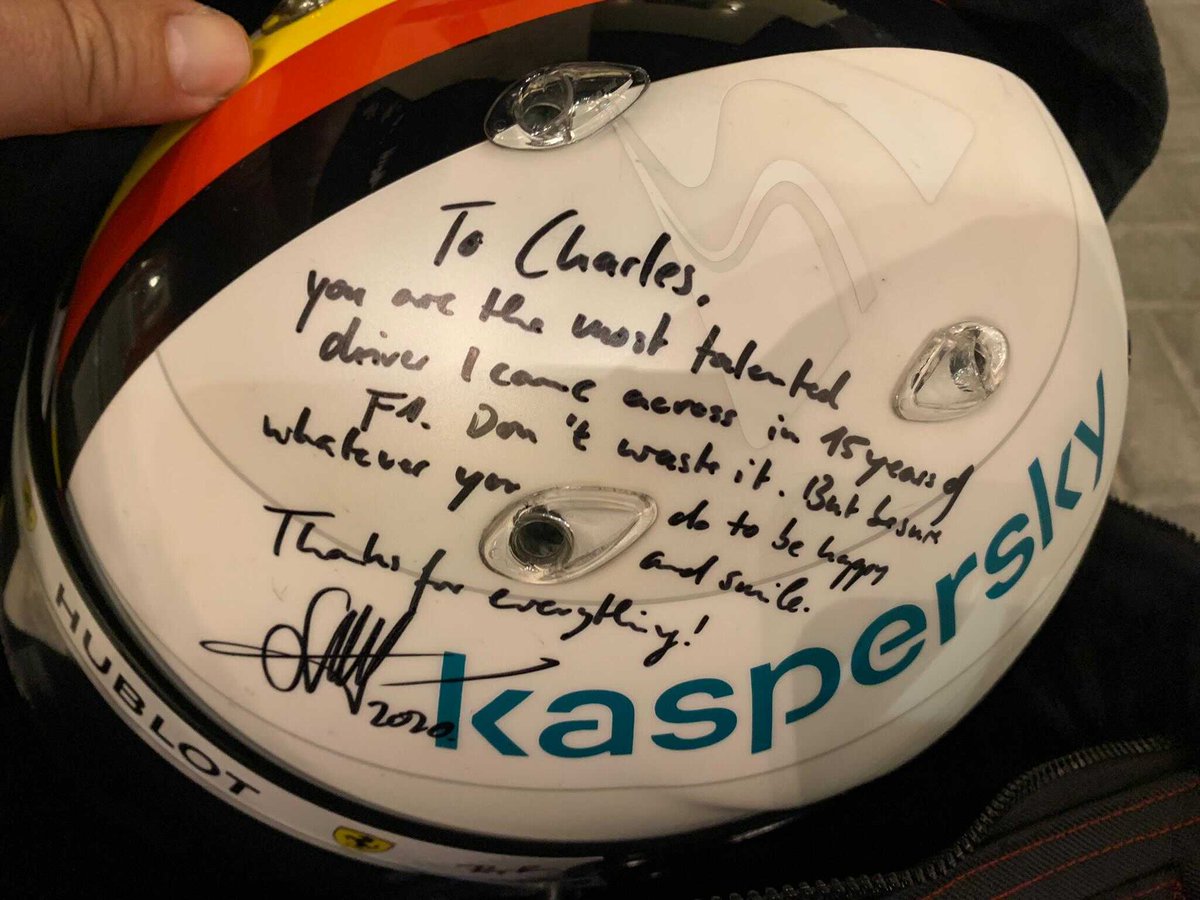 To Charles,
you are the most talented
driver I came across in 15 years of
F1. Don't waste it. But be sure
whatever you do to be happy
and smile.
Thanks for everything!
2020
kaspersky
HUBLOT